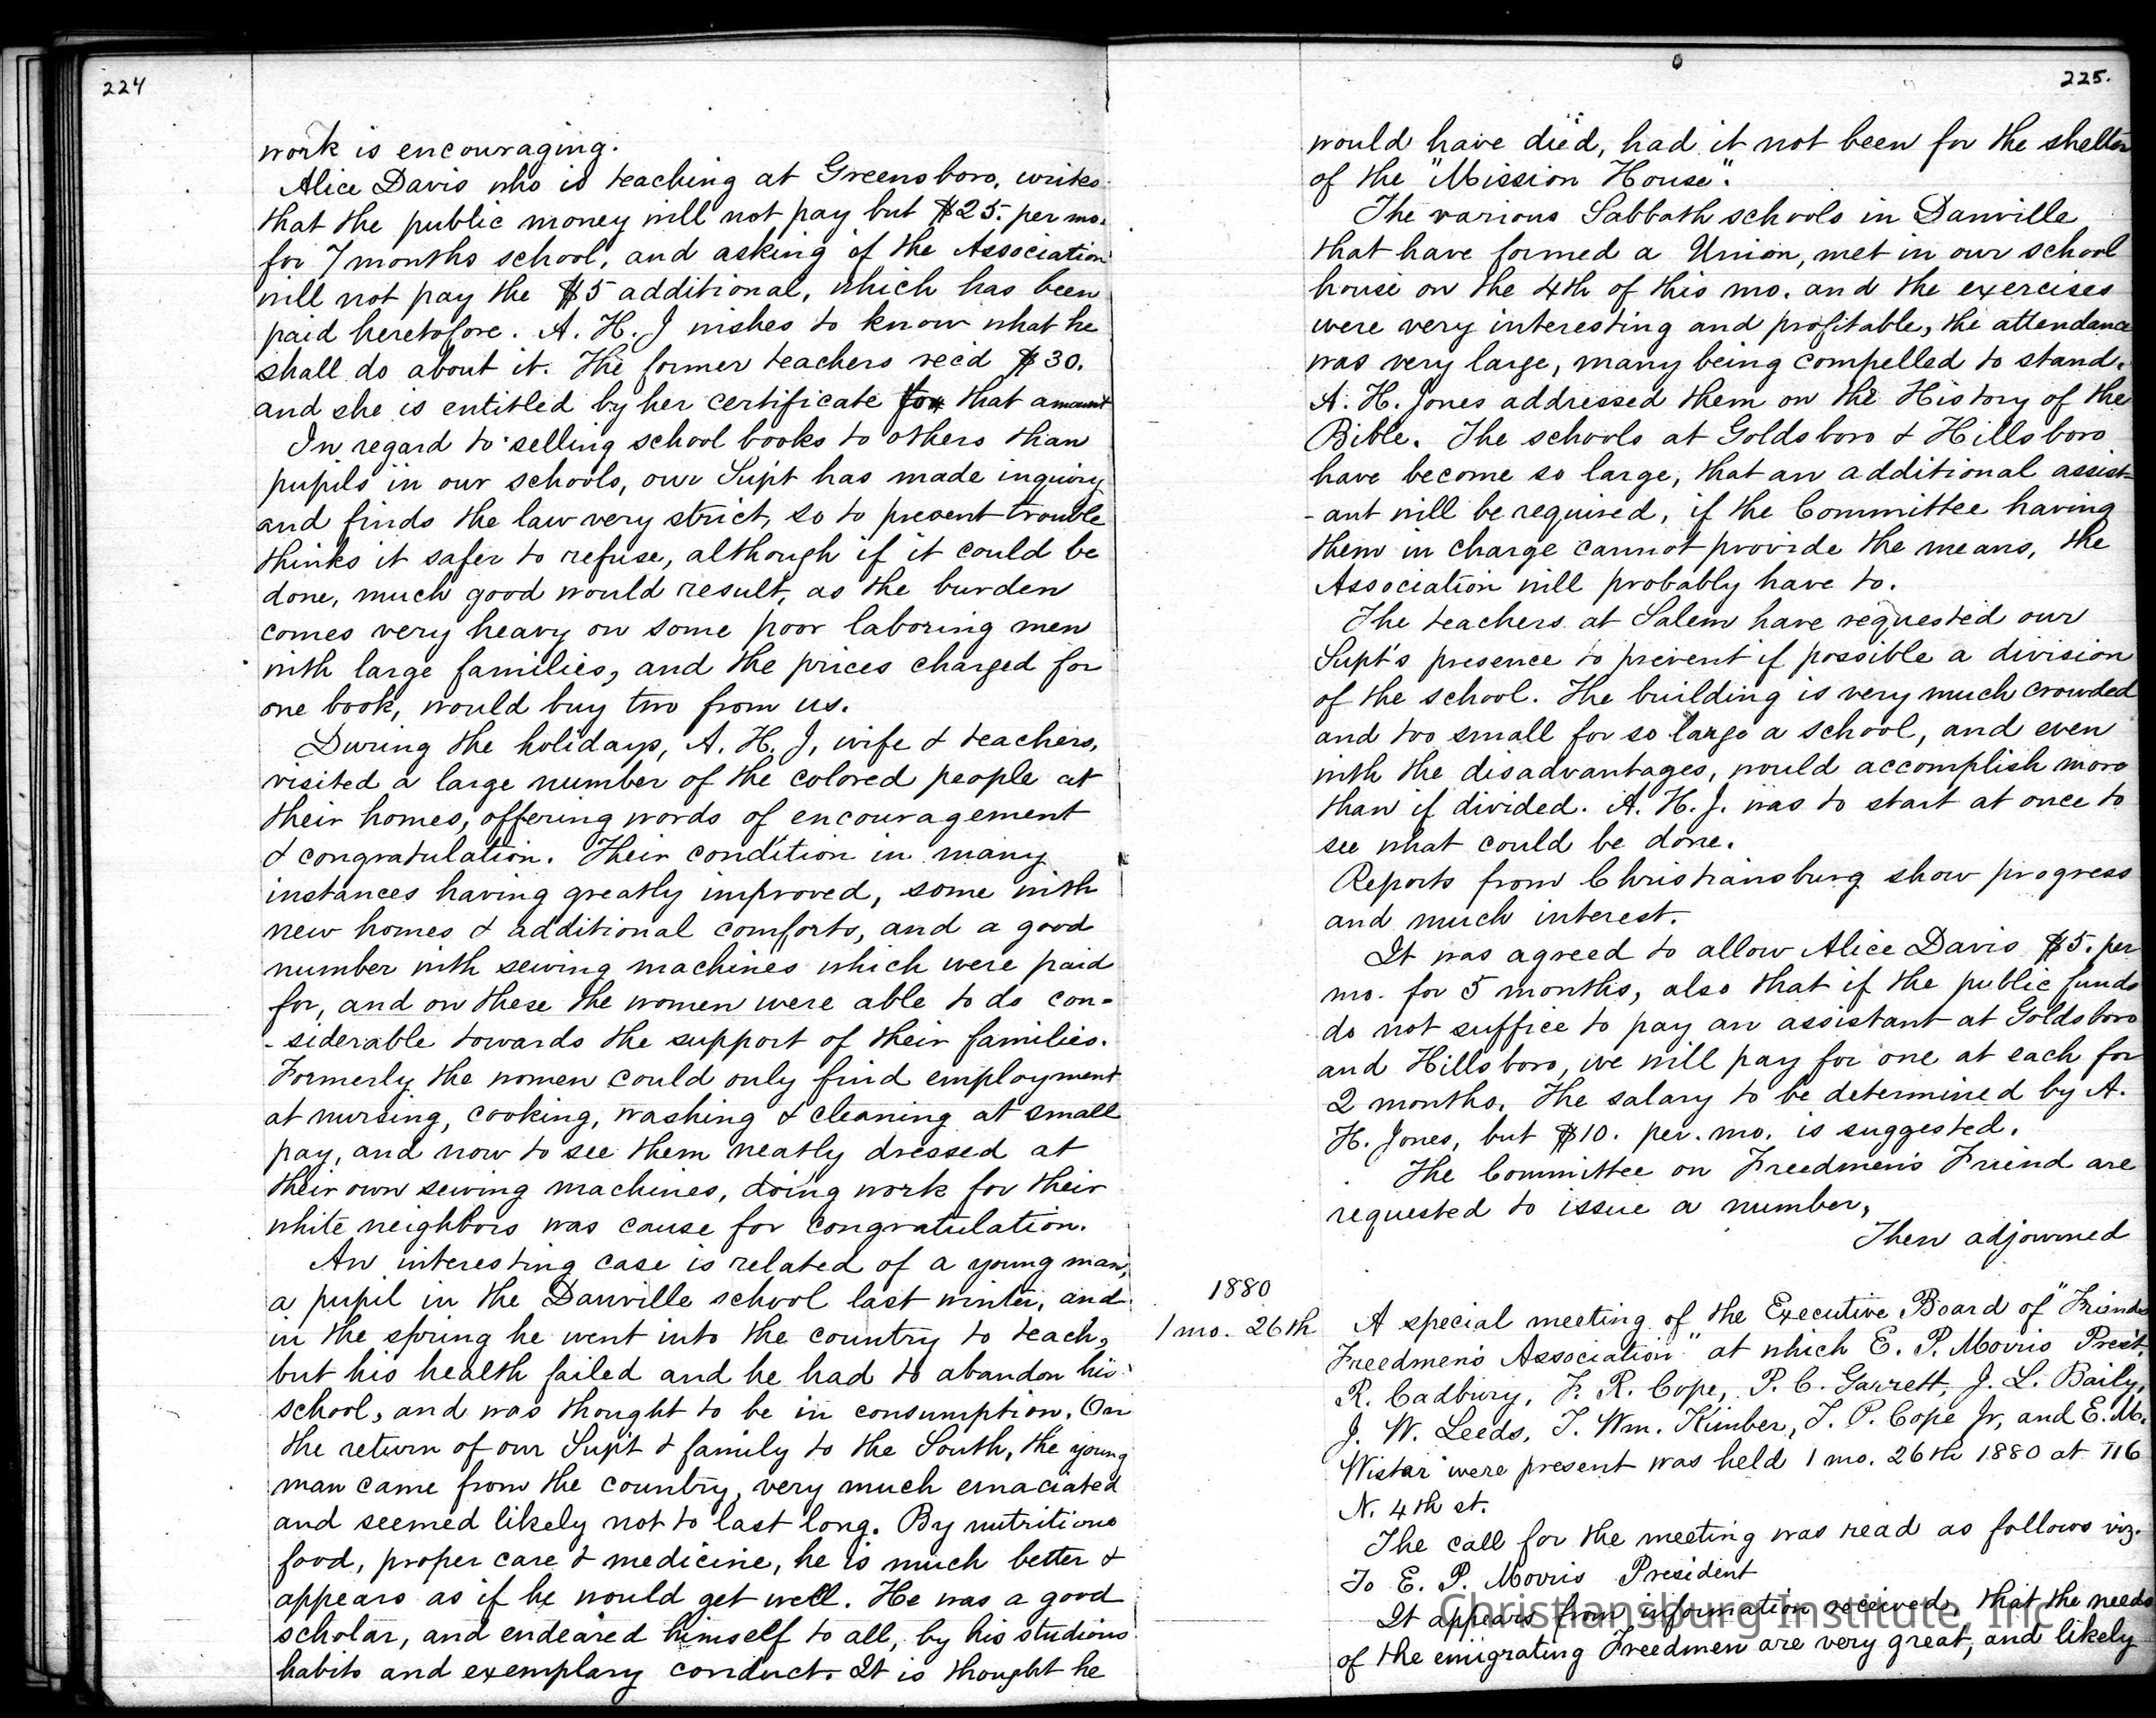 224
work is encouraging.
Alice Davis who is teaching at Greensboro, writes
that the public money will not pay but $25. per mo.
for 7 months school, and asking if the Association
will not pay the $5 additional, which has been
paid heretofore. A. H. J wishes to know what he
shall do about it. The former teachers rec'd $30.
and she is entitled by her certificate for that amount
In regard to selling school books to others than
pupils in our schools, our Sup't has made inquiry
and finds the law very strict, so to prevent trouble
thinks it safer to refuse, although if it could be
done, much good would result, as the burden
comes very heavy on some poor laboring men
with large families, and the prices charged for
one book, would buy two from us.
During the holidays, A. H. J, wife & teachers,
visited a large number of the colored people at
their homes, offering words of encouragement
& congratulation. Their condition in many
instances having greatly improved, some with
new homes & additional comforts, and a good
number with sewing machines which were paid
for, and on these the women were able to do con-
-siderable towards the support of their families.
Formerly the women could only find employment
at nursing, cooking, washing & cleaning at small
pay, and now to see them neatly dressed at
their own sewing machines, doing work for their
white neighbors was cause for congratulation.
An interesting case is related of a young man,
a pupil in the Danville school last winter, and
in the spring he went into the country to teach,
but his health failed and he had to abandon his
school, and was thought to be in consumption. On
the return of our Sup't & family to the South, the young
man came from the country, very much emaciated
and seemed likely not to last long. By nutritious
food, proper care & medicine, he is much better &
appears as if he would get well. He was a good
scholar, and endeared himself to all, by his studious
habits and exemplary conduct. It is thought he
225.
would have died, had it not been for the shelter
of the "Mission House".
The various Sabbath schools in Danville
that have formed a Union, met in our school
house on the 4th of this mo. and the exercises
were very interesting and profitable, the attendance
was very large, many being compelled to stand.
A. H. Jones addressed them on the History of the
Bible. The schools at Goldsboro & Hillsboro
have become so large, that an additional assist-
-ant will be required, if the Committee having
them in charge cannot provide the means, the
Association will probably have to.
The teachers at Salem have requested our
Supt's presence to prevent if possible a division
of the school. The building is very much crowded
and too small for so large a school, and even
with the disadvantages, would accomplish more
than if divided. A. H. J. was to start at once to
see what could be done.
Reports from Christiansburg show progress
and much interest.
It was agreed to allow Alice Davis $5. per
mo. for 5 months, also that if the public funds
do not suffice to pay an assistant at Goldsboro
and Hillsboro, we will pay for one at each for
2 months. The salary to be determined by A.
H. Jones, but $10. per. mo. is suggested.
The Committee on Freedmen's Friend are
requested to issue a number,
Then adjourned
1880
1 mo. 26th A special meeting of the Executive Board of "Friends
Freedmen's Association" at which E. P. Morris Pres't,
R. Cadbury, F. R. Cope, P. C. Garrett, J. L. Baily,
J. W. Leeds, T. Wm. Kimber, T. P. Cope Jr, and E. M.
Wistar were present was held 1 mo. 26th 1880 at 116
N. 4th st.
The call for the meeting was read as follows viz.
To E. P. Morris President
It appears from information received, that the needs
of the emigrating Freedmen are very great, and likely
Christiansburg Institute, Inc